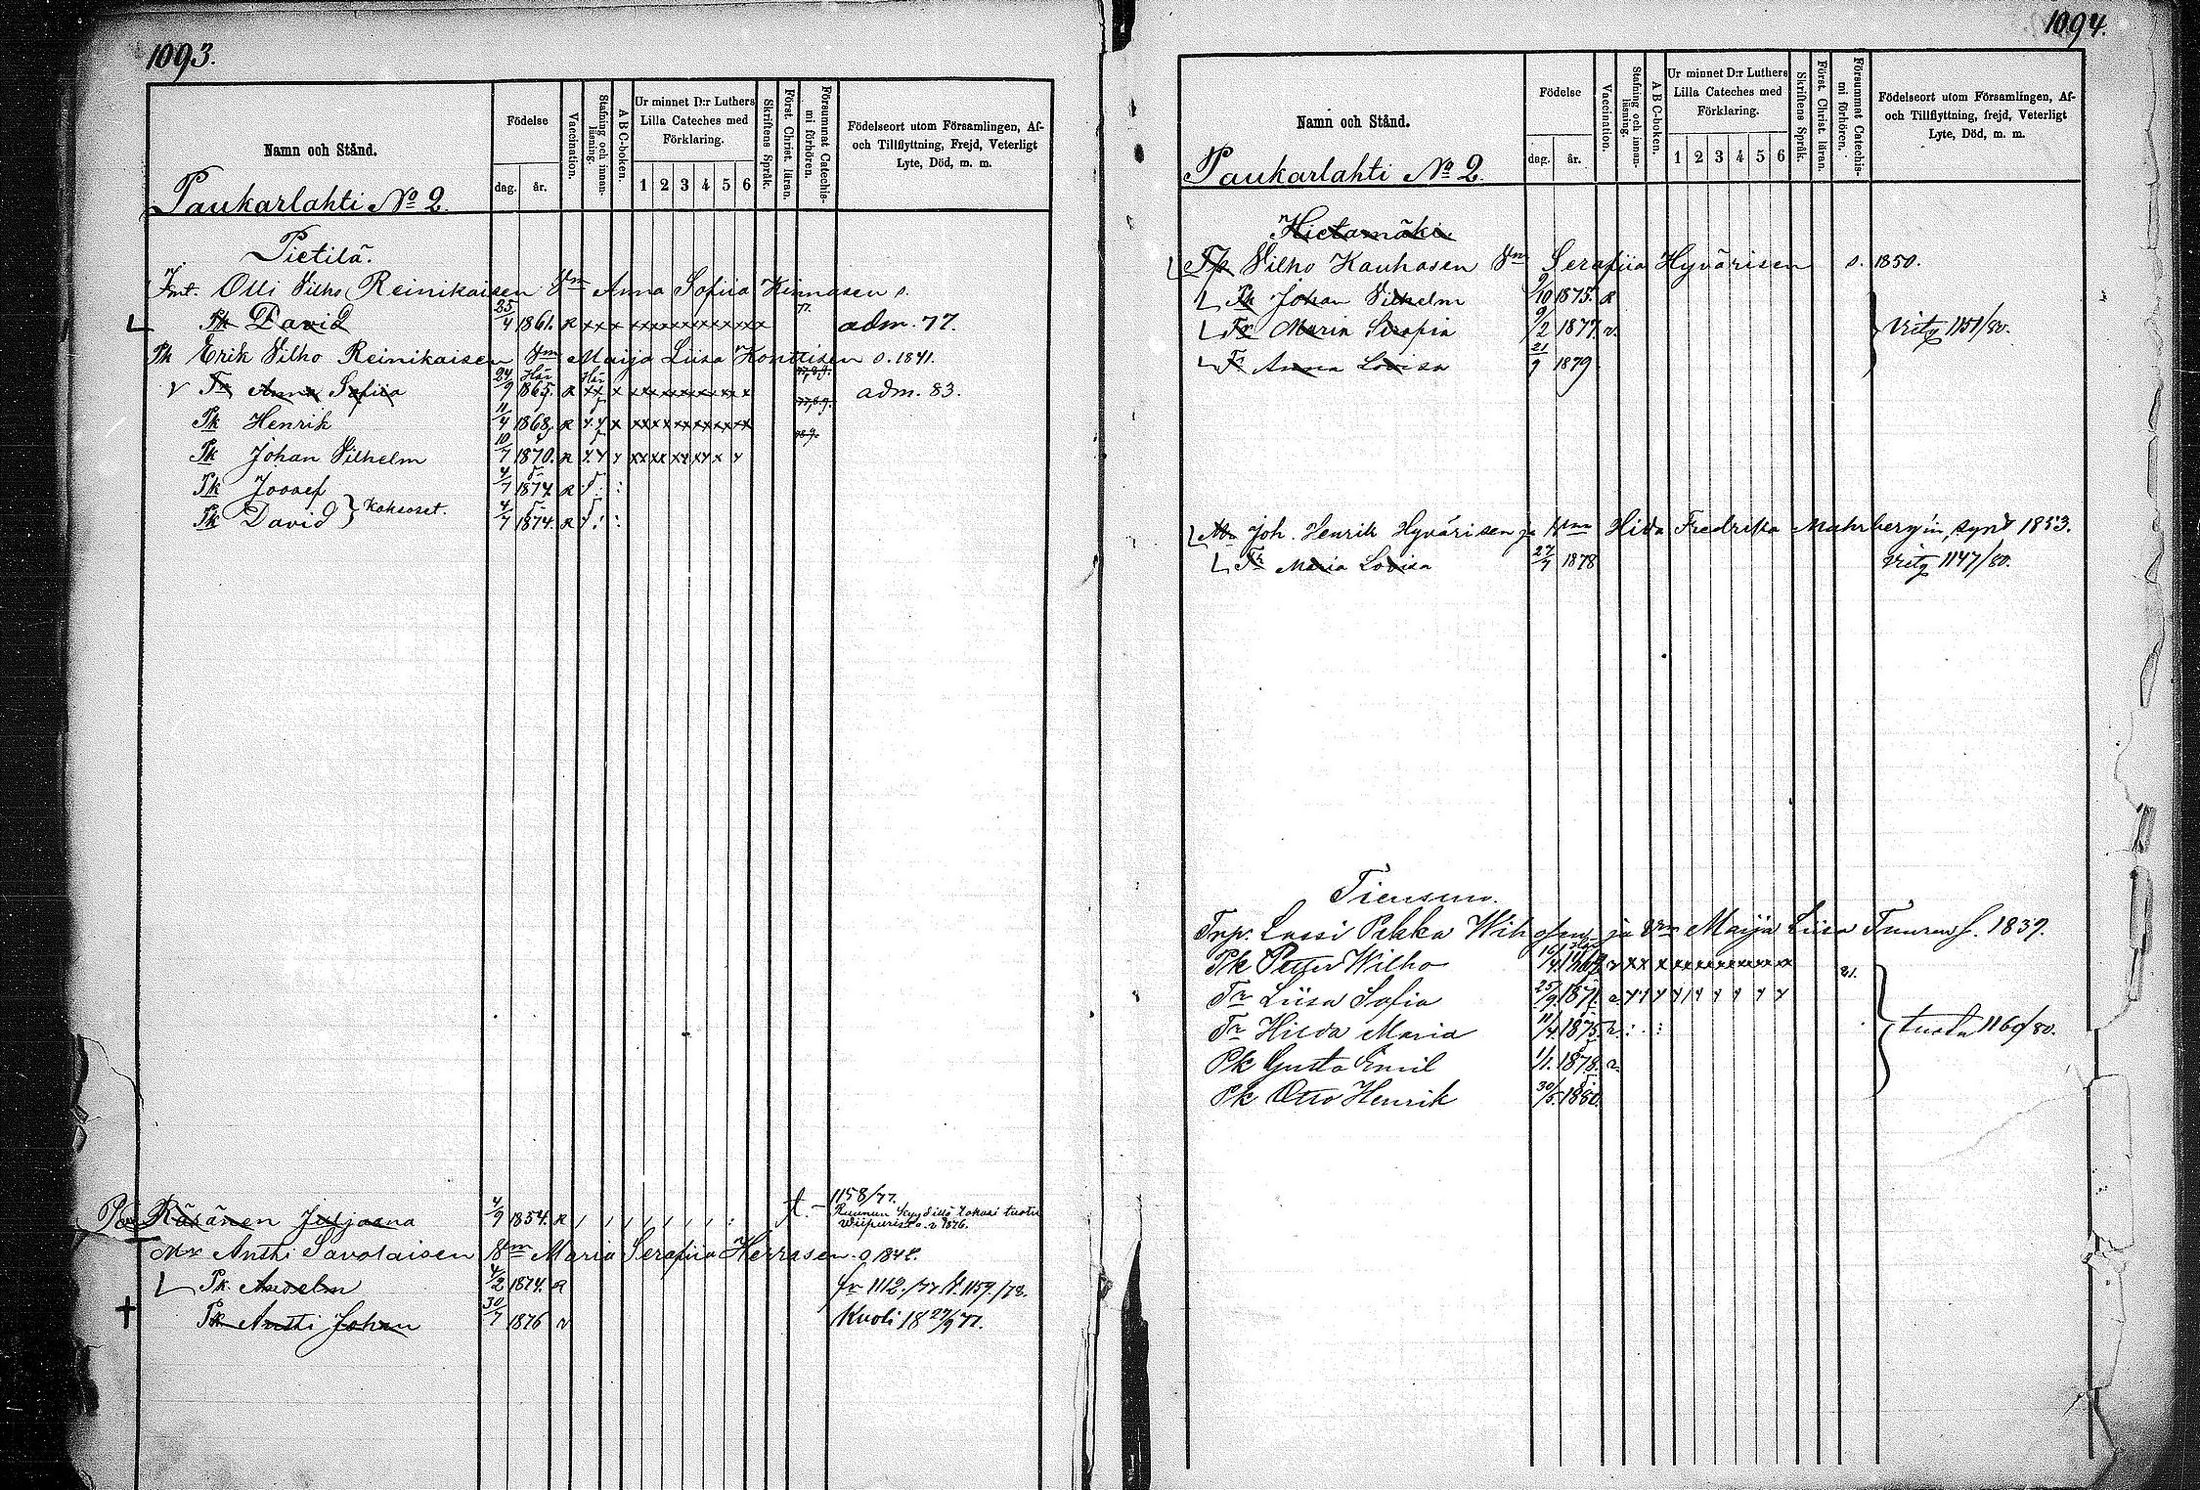 1093.
Namn och Stånd.
Födelse
dag.
år.
Vaccination.
Stafning och innan-läsning.
A B C-boken.
Ur minnet D:r Luthers
Lilla Cateches med
Förklaring.
1 2 3 4 5 6
Skriftens Språk.
Först. Christ. läran.
Försummat Catechis-
mi förhören.
Födelseort utom Församlingen, Af-
och Tillflyttning, Frejd, Veterligt
Lyte, Död, m. m.
Paukarlahti No 2.
Pietilä.
Olli Vilho Reinikaisen Vm Anna Sofiia Kinnasen s.
Pk David 25/4 1861. R x x x x x x x x x x x x x x 77. adm. 77.
Pk Erik Vilho Reinikaisen Vm Maija Liisa Konttisen s. 1841.
Tr Anna Sofiia 24/9 1865. R x x x x x x x x x x x adm. 83.
Pk Henrik 11/4 1868. R x x x x x x x x x x x
Pk Johan Vilhelm 10/7 1870. R
Pk Josef 4/7 1874 R
Pk David } Kaksoset. 4/7 1874. R
Räsänen Juljaana 4/9 1854. R 1158/77.
1876.
Antti Savolaisen Vm Maria Serafiia Herrasen s.
Pk Anselm 4/2 1874. R 1112./77 1159./78.
Pk Antti Johan 30/7 1876 Kuoli 18 27/9 77.
1094.
Namn och Stånd.
Födelse
dag.
år.
Vaccination.
Stafning och innan-läsning.
A B C-boken.
Ur minnet D:r Luthers
Lilla Cateches med
Förklaring.
1 2 3 4 5 6
Skriftens Språk.
Först. Christ. läran.
Försummat Catechis-
mi förhören.
Födelseort utom Församlingen, Af-
och Tillflyttning, frejd, Veterligt
Lyte, Död, m. m.
Paukarlahti No 2.
Hietamäki
Vilho Kauhasen Vm Serafiia Hyvärisen s. 1850.
Pk Johan Vilhelm 9/10 1875. R
Tr Maria Serafia 9/2 1877. 1151/80.
Tr Anna Lovisa 21/9 1879.
Joh. Henrik Hyvärisen ja Vmn Hilda Fredrika Mahrbergin, synt 1853.
Tr Maria Lovisa 27/7 1878 1147/80.
Tiensuu.
Lassi Pekka ja Vm Maija Liisa s. 1839.
Pk Petter Wilho 16/4 x x x x x x x x x x x 81.
Tr Liisa Sofia 25/9. 1871.
Tr Hilda Maria 11/4 1875. 1160/80.
Pk Gusta Emil 1/1. 1878.
Pk Otto Henrik 30/5. 1880.